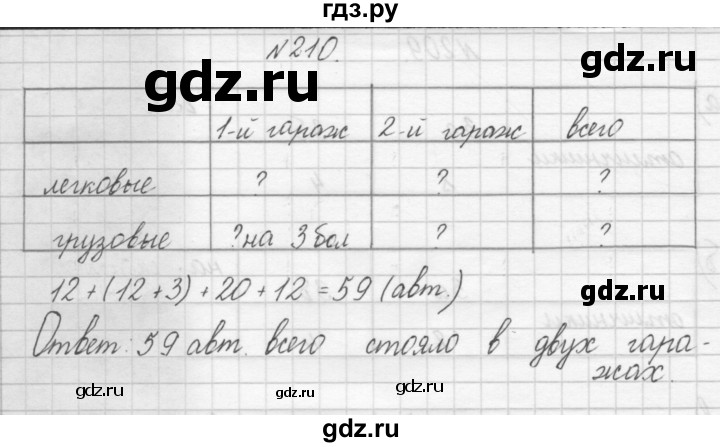 гдз.ру
№210.
gdz.ru
gdz.ru
1-й гараж 2-й гараж всего
легковые ? ? ?
грузовые ?на 3 бол ? ?
12+(12+3)+20+12=59 (авт.)
gdz.ru
Ответ: 59 авт. всего стояло в двух гара-
жах.
gdz.ru
gdz.ru
gdz.ru